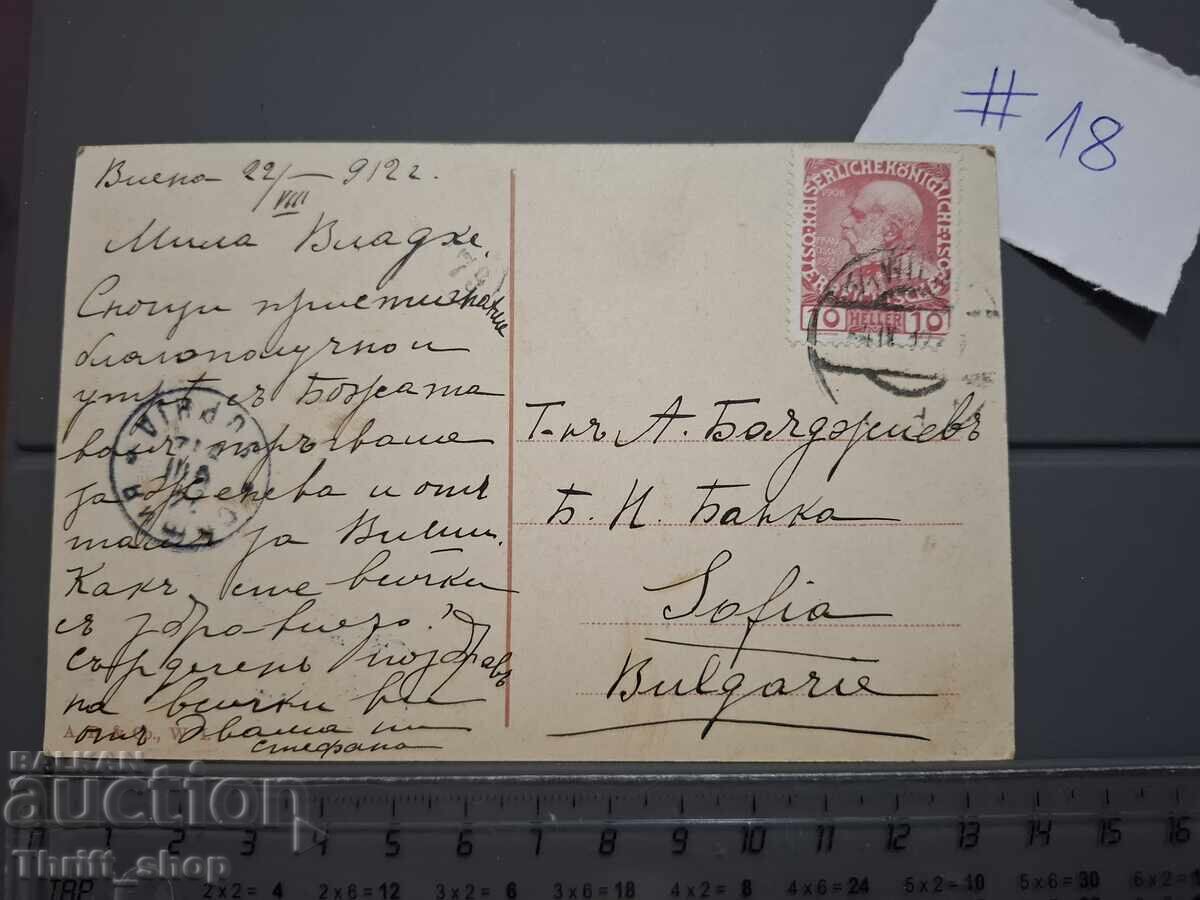 # 18
Виена 22/VIII 912 г.
Мила Владке,
Снощи пристигнахме
благополучно и
утрѣ съ Божата
воля тръгваме
за Женева и отъ
тамъ за Виши.
Какъ сте всички
съ здравието?
Сърдеченъ поздравъ
на всички ви
отъ двама ни
Стефана
79
KAISERLICHE KÖNIGLICHE
ÖSTERREICHISCHE
1908
10 HELLER 10
WIEN
СОФИЯ
SOPHIA
Т-нъ А. Бояджиевъ
Б. Н. Банка
Sofia
Bulgarie
BALKAN
auction
Thrift_shop
1 2 3 4 5 6 7 8 9 10 11 12 13 14 15 16
2 x 2 = 4 2 x 6 = 12 3 x 2 = 6 3 x 6 = 18 4 x 2 = 8 4 x 6 = 24 5 x 2 = 10 5 x 6 = 30 6 x 2 = 1